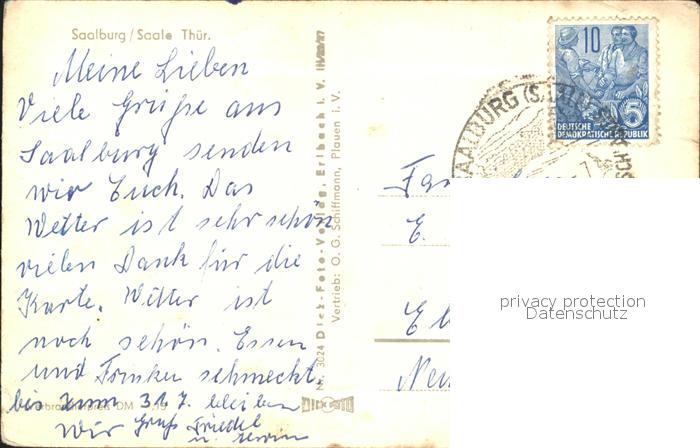 Saalburg / Saale Thür.
Meine Lieben
Viele Grüße aus
Saalburg senden
wir Euch. Das
Wetter ist sehr schön
vielen Dank für die
Karte. Wetter ist
noch schön. Essen
und Trinken schmeckt.
bis zum 31.7. bleiben
wir Gruß Friedel
u. Erwin
Nr. 3024 Dick-Foto-Verlag, Erlbach i. V.
Vertrieb: O. G. Schiffmann, Plauen i. V.
DICK FOTO
10
5
DEUTSCHE
DEMOKRATISCHE REPUBLIK
SAALBURG (SAALE)
Fam
E.
El
Neu
privacy protection
Datenschutz